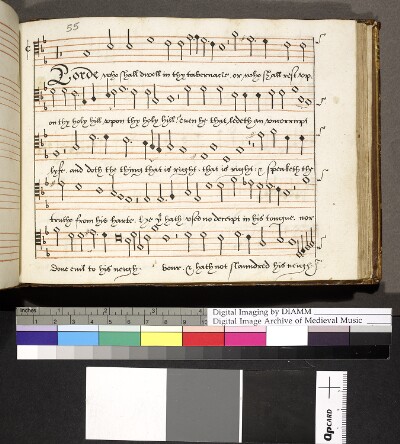 55
Lorde who shall dwell in thy tabernacle, or who shall rest vp,
on thy holy hill vppon thy holy hill: Euen he that ledeth an vncorrupt
lyfe, and doth the thing that is right, that is right: & speaketh the
truthe from his harte. he yt hath vsed no deceipt in his tongue, nor
done euil to his neigh- bour, & hath not slaundred his neigh-
Digital Imaging by DIAMM
Digital Image Archive of Medieval Music
QPCARD